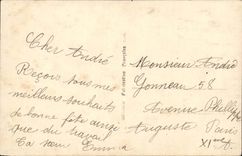 Cher André
Reçois tous mes
meilleurs souhaits
de bonne fête ainsi
que du travail
Ta sœur Emma
Monsieur André
Gonneau 58
Avenue
Auguste Paris
XIe